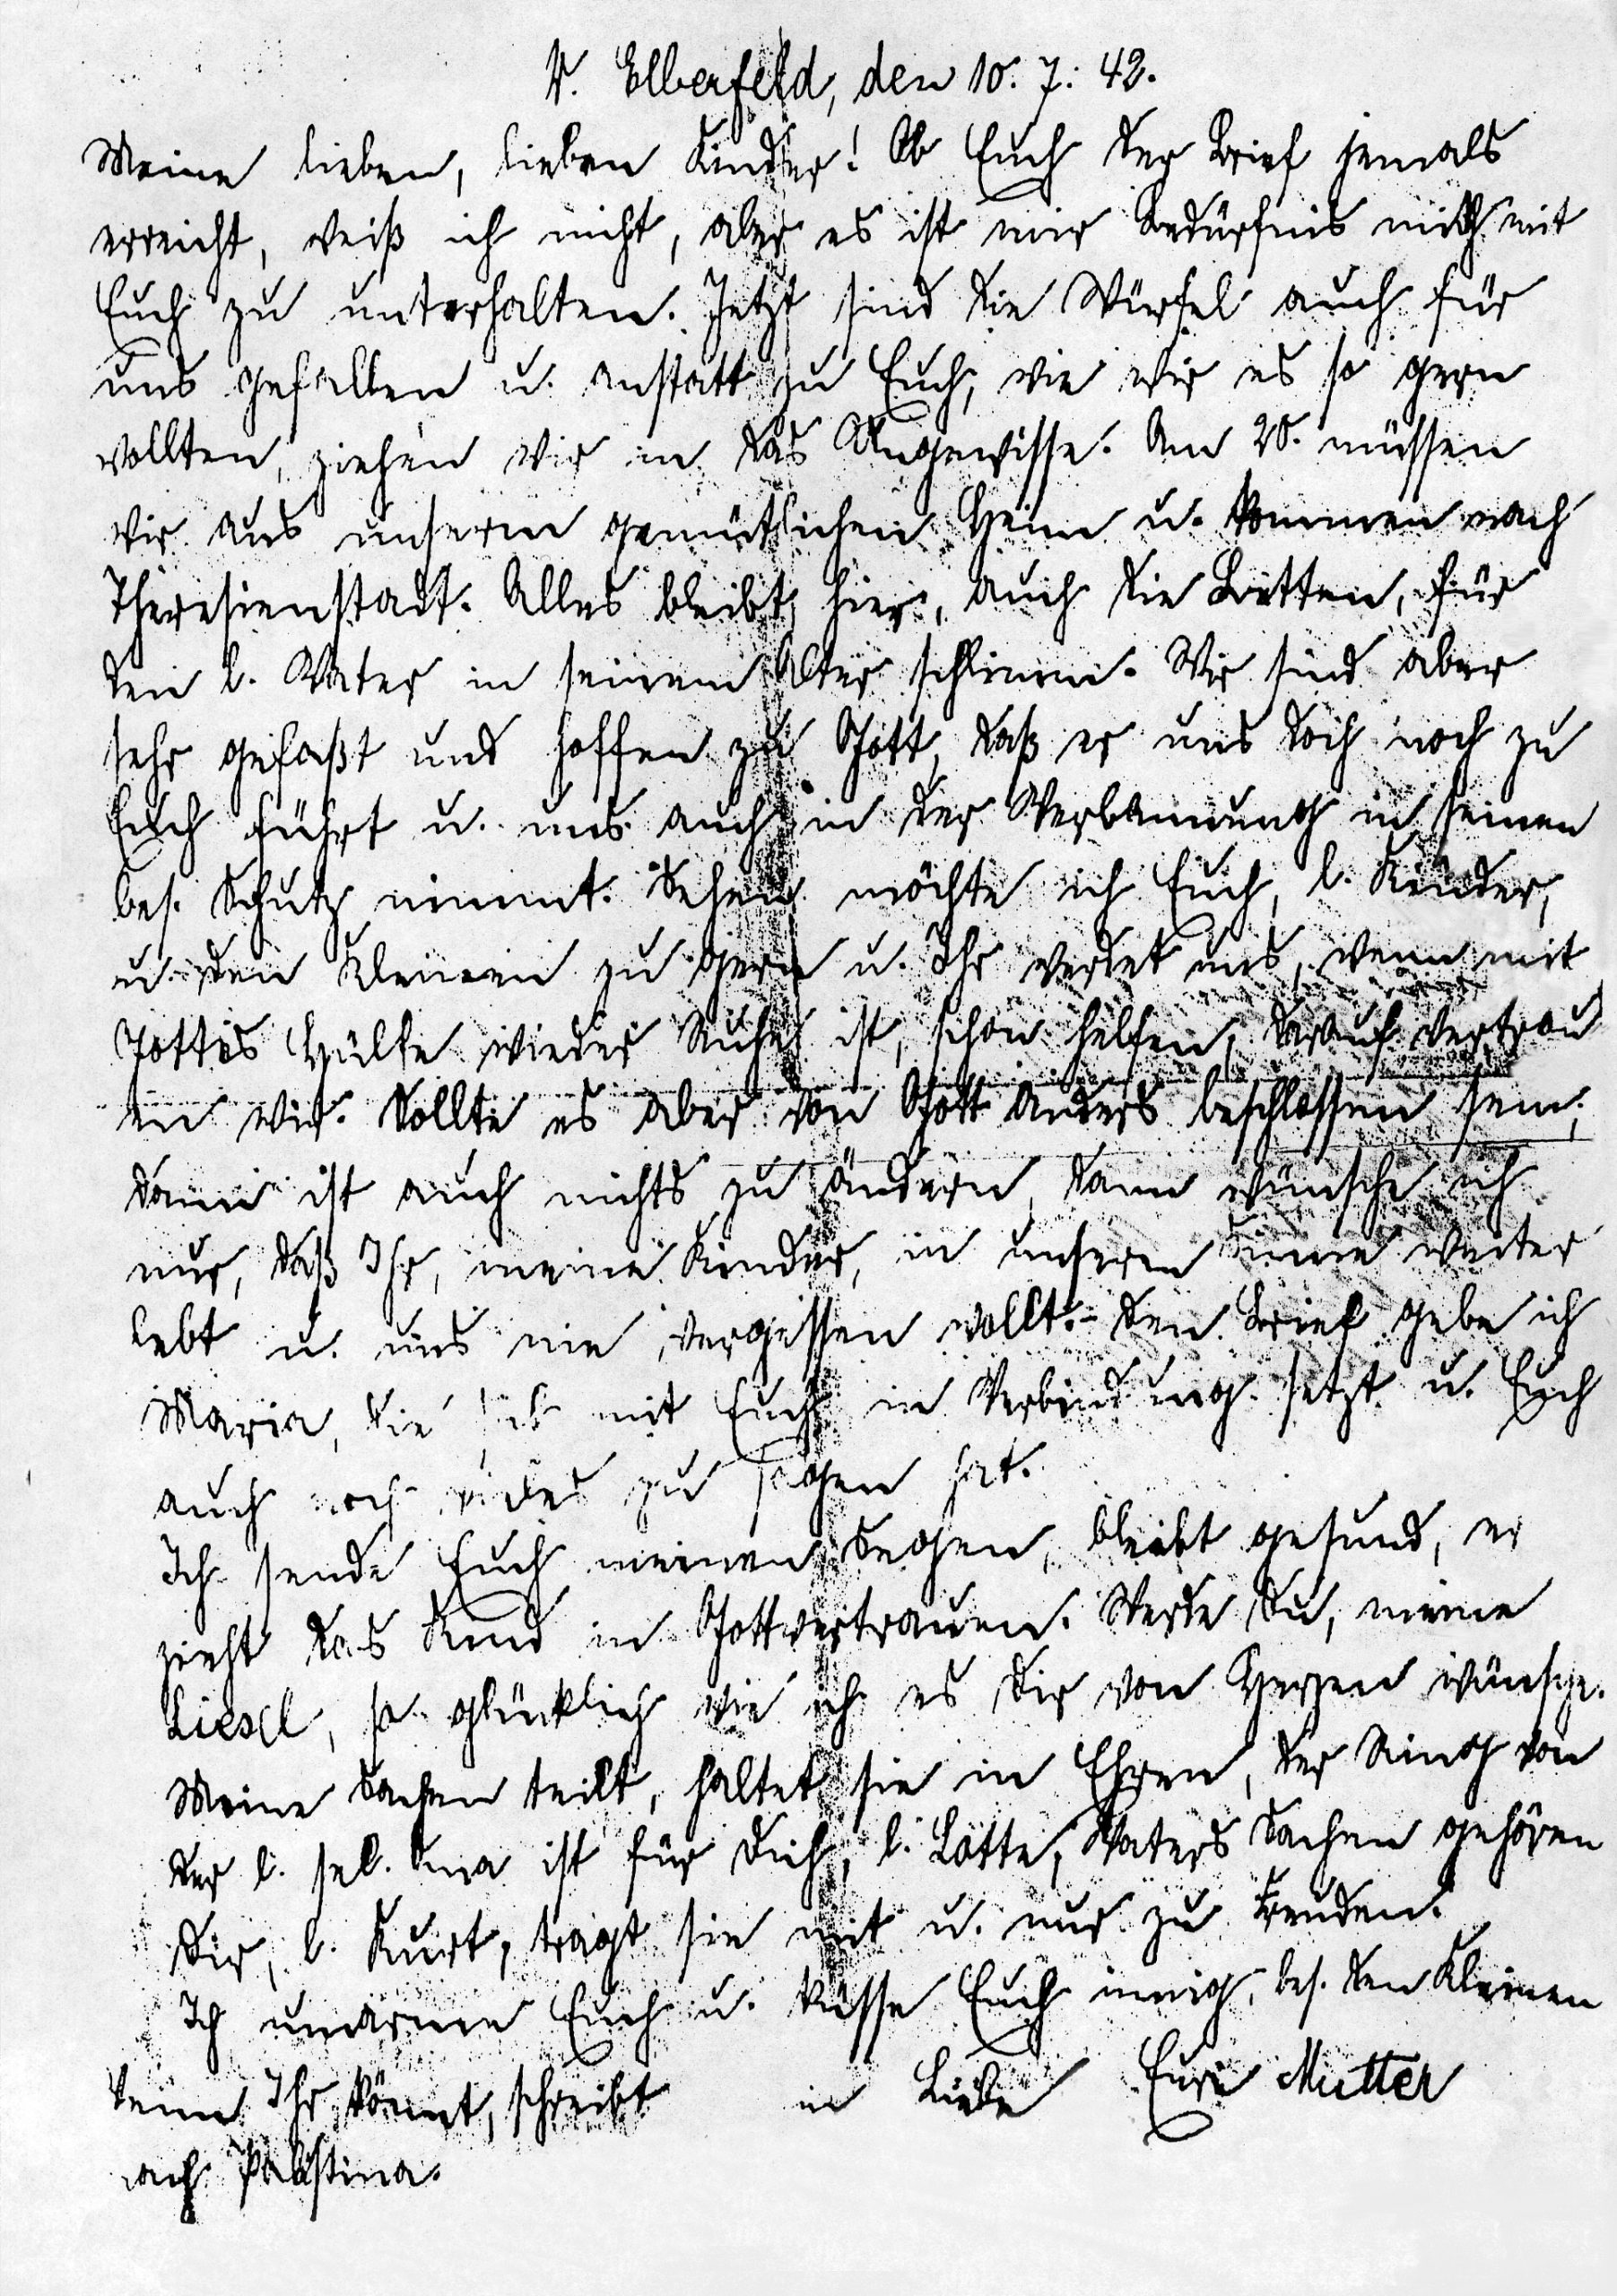 W. Elberfeld, den 10. 7. 42.
Meine lieben, lieben Kinder! Ob Euch der Brief jemals
erreicht, weiß ich nicht, aber es ist mir Bedürfnis mich mit
Euch zu unterhalten. Jetzt sind die Würfel auch für
uns gefallen u. anstatt zu Euch, wie wir es so gern
wollten, ziehen wir in das Ungewisse. Am 20. müssen
wir aus unserem gemütlichen Heim u. kommen nach
Theresienstadt. Alles bleibt hier, auch die Betten, für
den l. Vater in seinem Alter schlimm. Wir sind aber
sehr gefaßt und hoffen zu Gott, daß er uns doch noch zu
Euch führt u. uns auch in der Verbannung in seinen
bes. Schutz nimmt. Sehen möchte ich Euch, l. Kinder,
u. den Kleinen zu gern u. Ihr werdet uns, wenn mit
Gottes Hülfe wieder Ruhe ist, schon helfen, darauf vertrau
en wir. Sollte es aber von Gott anders beschlossen sein,
dann ist auch nichts zu ändern, dann wünsche ich
nur, daß Ihr, meine Kinder, in unserem Sinne weiter
lebt u. uns nie vergessen wollt.- Den Brief gebe ich
Maria, die sich mit Euch in Verbindung setzt u. Euch
auch noch vieles zu sagen hat.
Ich sende Euch meinen Segen, bleibt gesund, er
zieht das Kind in Gottvertrauen. Werde Du, meine
Liesel, so glücklich wie ich es Dir von Herzen wünsche.
Meine Sachen teilt, haltet sie in Ehren, der Ring von
der l. sel. Oma ist für Dich, l. Lotte, Vaters Sachen gehören
Dir, l. Kurt, tragt sie mit u. nur zu Freuden.
Ich umarme Euch u. küsse Euch innig, bes. den Kleinen
in Liebe Eure Mutter
Wenn Ihr könnt, schreibt
nach Palästina.